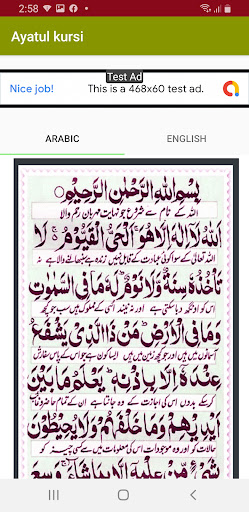 2:58
Ayatul kursi
Test Ad
Nice job!
This is a 468x60 test ad.
ARABIC
ENGLISH
بِسْمِ اللّٰهِ الرَّحْمٰنِ الرَّحِيْمِ
اللہ کے نام سے شروع جو نہایت مہربان رحم والا
اَللّٰهُ لَاۤ اِلٰهَ اِلَّا هُوَ ۚ اَلْحَیُّ الْقَیُّوْمُ ۚ لَا
اللہ تعالیٰ کے سوا کوئی عبادت کے قابل نہیں زندہ ہے سنبھالنے والا ہے نہ
تَاْخُذُهٗ سِنَةٌ وَّلَا نَوْمٌ ؕ لَهٗ مَا فِی السَّمٰوٰتِ
اس کو اونگھ دبا سکتی ہے اور نہ نیند اسی کے مملوک ہیں سب جو کچھ
وَمَا فِی الْاَرْضِ ؕ مَنْ ذَا الَّذِیْ یَشْفَعُ
آسمانوں میں ہیں اور جو کچھ زمین میں ہیں ایسا کون ہے جو اس کے پاس سفارش
عِنْدَهٗۤ اِلَّا بِاِذْنِهٖ ؕ یَعْلَمُ مَا بَیْنَ
کر سکے بدوں اس کی اجازت کے وہ جانتا ہے ان کے تمام حاضر و غائب
اَیْدِیْهِمْ وَمَا خَلْفَهُمْ ۚ وَلَا یُحِیْطُوْنَ
حالات کو اور وہ موجودات اس کی معلومات میں سے کسی چیز کو
شَیْءٍ مِّنْ عِلْمِهٖۤ اِلَّا بِمَا شَآءَ ۚ وَسِعَ